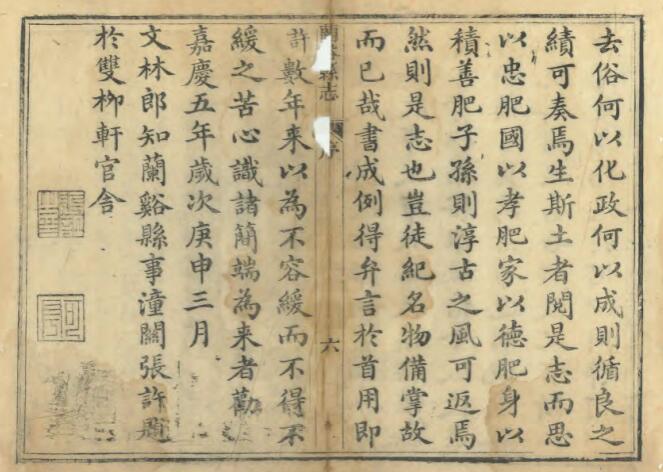 去俗何以化政何以成則循良之
績可奏焉生斯土者閱是志而思
以忠肥國以孝肥家以德肥身以
積善肥子孫則淳古之風可返焉
然則是志也豈徒紀名物備掌故
而已哉書成例得弁言於首用即
縣志
序
六
許數年來以為不容緩而不得不
緩之苦心識諸簡端為来者勸
嘉慶五年歲次庚申三月
文林郎知蘭谿縣事潼關張許
於雙柳軒官舍